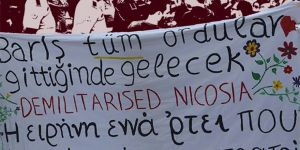 Barış tüm ordular
gittiğinde gelecek
DEMILITARISED NICOSIA
Η ειρήνη εννά 'ρτει που